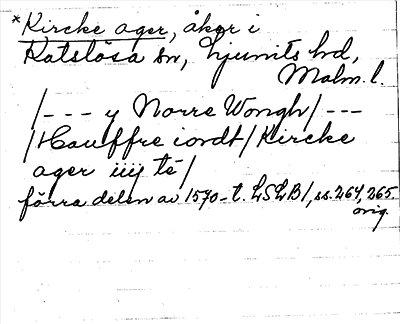 *Kircke ager, åker i
Katslösa sn, Ljunits hd,
Malm. l.
/--- y Norre Wongh/ ---
/Hauffre iordt/ Kircke
ager iiij te/
förra delen av 1570-t. LSLB1, ss. 264, 265.
orig.